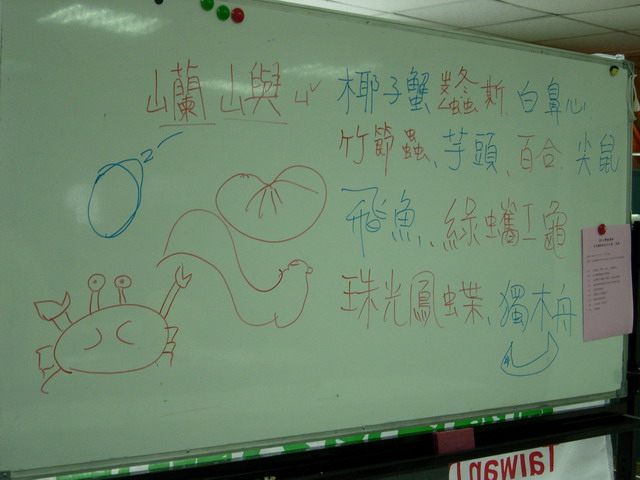 山蘭 嶼 山 椰子蟹、螽斯、白鼻心、
竹節蟲、芋頭、百合、尖鼠
飛魚、綠蠵龜
珠光鳳蝶、獨木舟
Taiwan